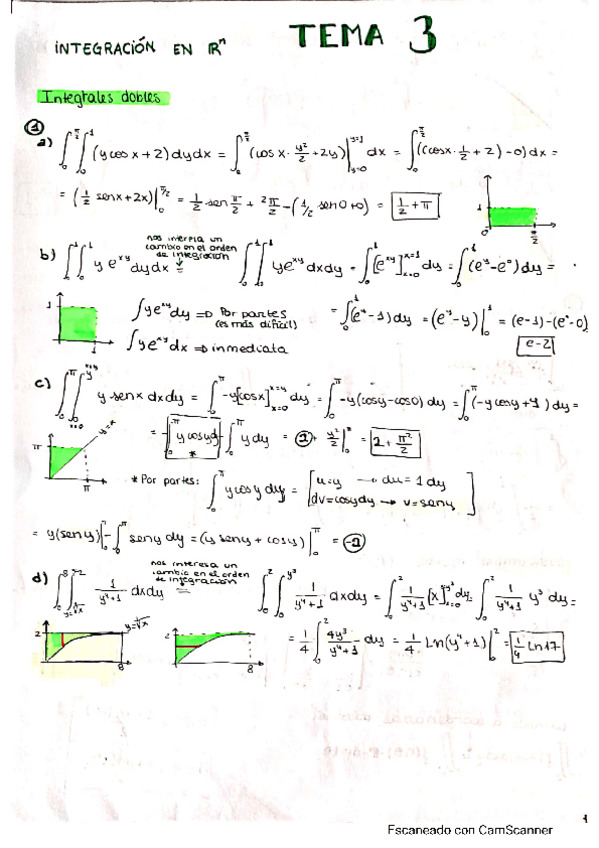 INTEGRACIÓN EN ℝⁿ TEMA 3
Integrales dobles
①
a) ∫₀^{π/2} ∫₀^1 (y cos x + 2) dy dx = ∫₀^{π/2} (cos x · y²/2 + 2y)|_{y=0}^{y=1} dx = ∫₀^{π/2} ((cos x · 1/2 + 2) - 0) dx =
= (1/2 sen x + 2x)|₀^{π/2} = 1/2 · sen π/2 + 2 π/2 - (1/2 sen 0 + 0) = 1/2 + π
1
0
π/2
nos interesa un
cambio en el orden
de integración
b) ∫₀^1 ∫₀^1 y e^{xy} dy dx = ∫₀^1 ∫₀^1 y e^{xy} dx dy = ∫₀^1 [e^{xy}]_{x=0}^{x=1} dy = ∫₀^1 (e^y - e^0) dy =
1
1
∫ y e^{xy} dy ⇒ Por partes
(es más difícil)
∫ y e^{xy} dx ⇒ inmediata
= ∫₀^1 (e^y - 1) dy = (e^y - y)|₀^1 = (e - 1) - (e^0 - 0)
e - 2
c) ∫₀^π ∫_{x=0}^{x=y} y sen x dx dy = ∫₀^π -y[cos x]_{x=0}^{x=y} dy = ∫₀^π -y(cos y - cos 0) dy = ∫₀^π (-y cos y + y) dy =
= -∫₀^π y cos y dy + ∫₀^π y dy = 2 + y²/2|₀^π = 2 + π²/2
*
π
y=x
π
* Por partes: ∫₀^π y cos y dy = [u=y → du = 1 dy
dv = cos y dy → v = sen y]
= y(sen y)|₀^π - ∫₀^π sen y dy = (y sen y + cos y)|₀^π = -2
nos interesa un
cambio en el orden
de integración
d) ∫₀^8 ∫_{y=∛x}^2 1/(y⁴+1) dx dy = ∫₀^2 ∫₀^{y³} 1/(y⁴+1) dx dy = ∫₀^2 1/(y⁴+1) [x]_{x=0}^{y³} dy = ∫₀^2 1/(y⁴+1) y³ dy =
2
y=∛x
8
2
8
= 1/4 ∫₀^2 4y³/(y⁴+1) dy = 1/4 Ln(y⁴+1)|₀^2 = 1/4 Ln 17
1
Escaneado con CamScanner